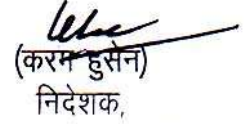 (करम हुसेन)
निदेशक,